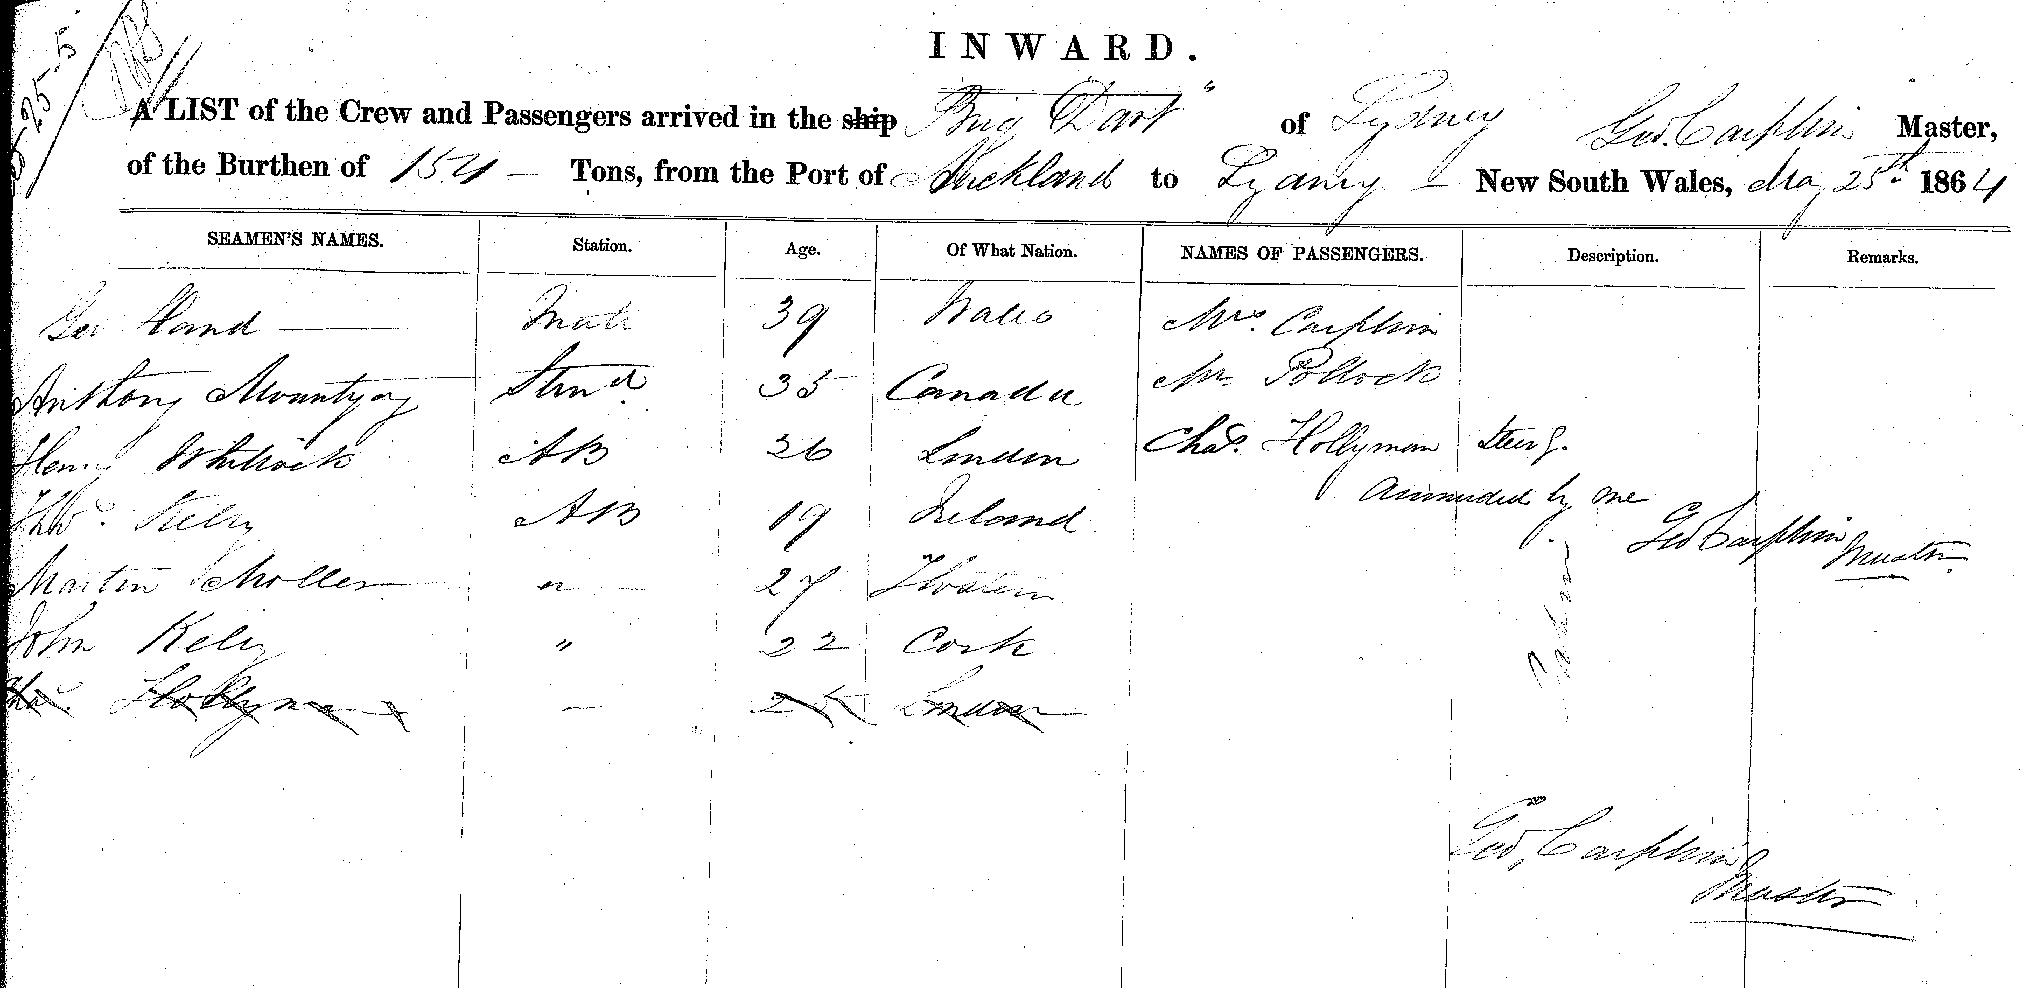 INWARD.
A LIST of the Crew and Passengers arrived in the ship Brig Dart" of Sydney Geo. Carphin Master,
of the Burthen of 154 — Tons, from the Port of Auckland to Sydney — New South Wales, May 25th 1864
SEAMEN'S NAMES. Station. Age. Of What Nation. NAMES OF PASSENGERS. Description. Remarks.
Geo Hand — Mate 39 Wales Mrs. Carphin
Anthony Mountjoy Stewd. 35 Canada Mr. Pollock
Henry Whitlock AB 26 London Chas. Hollyman Steerg.
Thos. Kelly AB 19 Ireland
Ammended by me
Geo Carphin
Master
Martin Scholler " — 27 Holstein
John Kelly " 22 Cork
Chas. Hollyman — 25 London
Geo, Carphin
Master